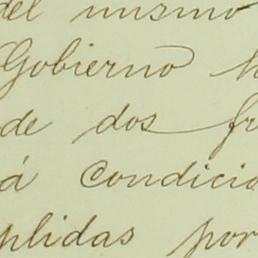 del mismo
Gobierno
de dos
á condicio
plidas por